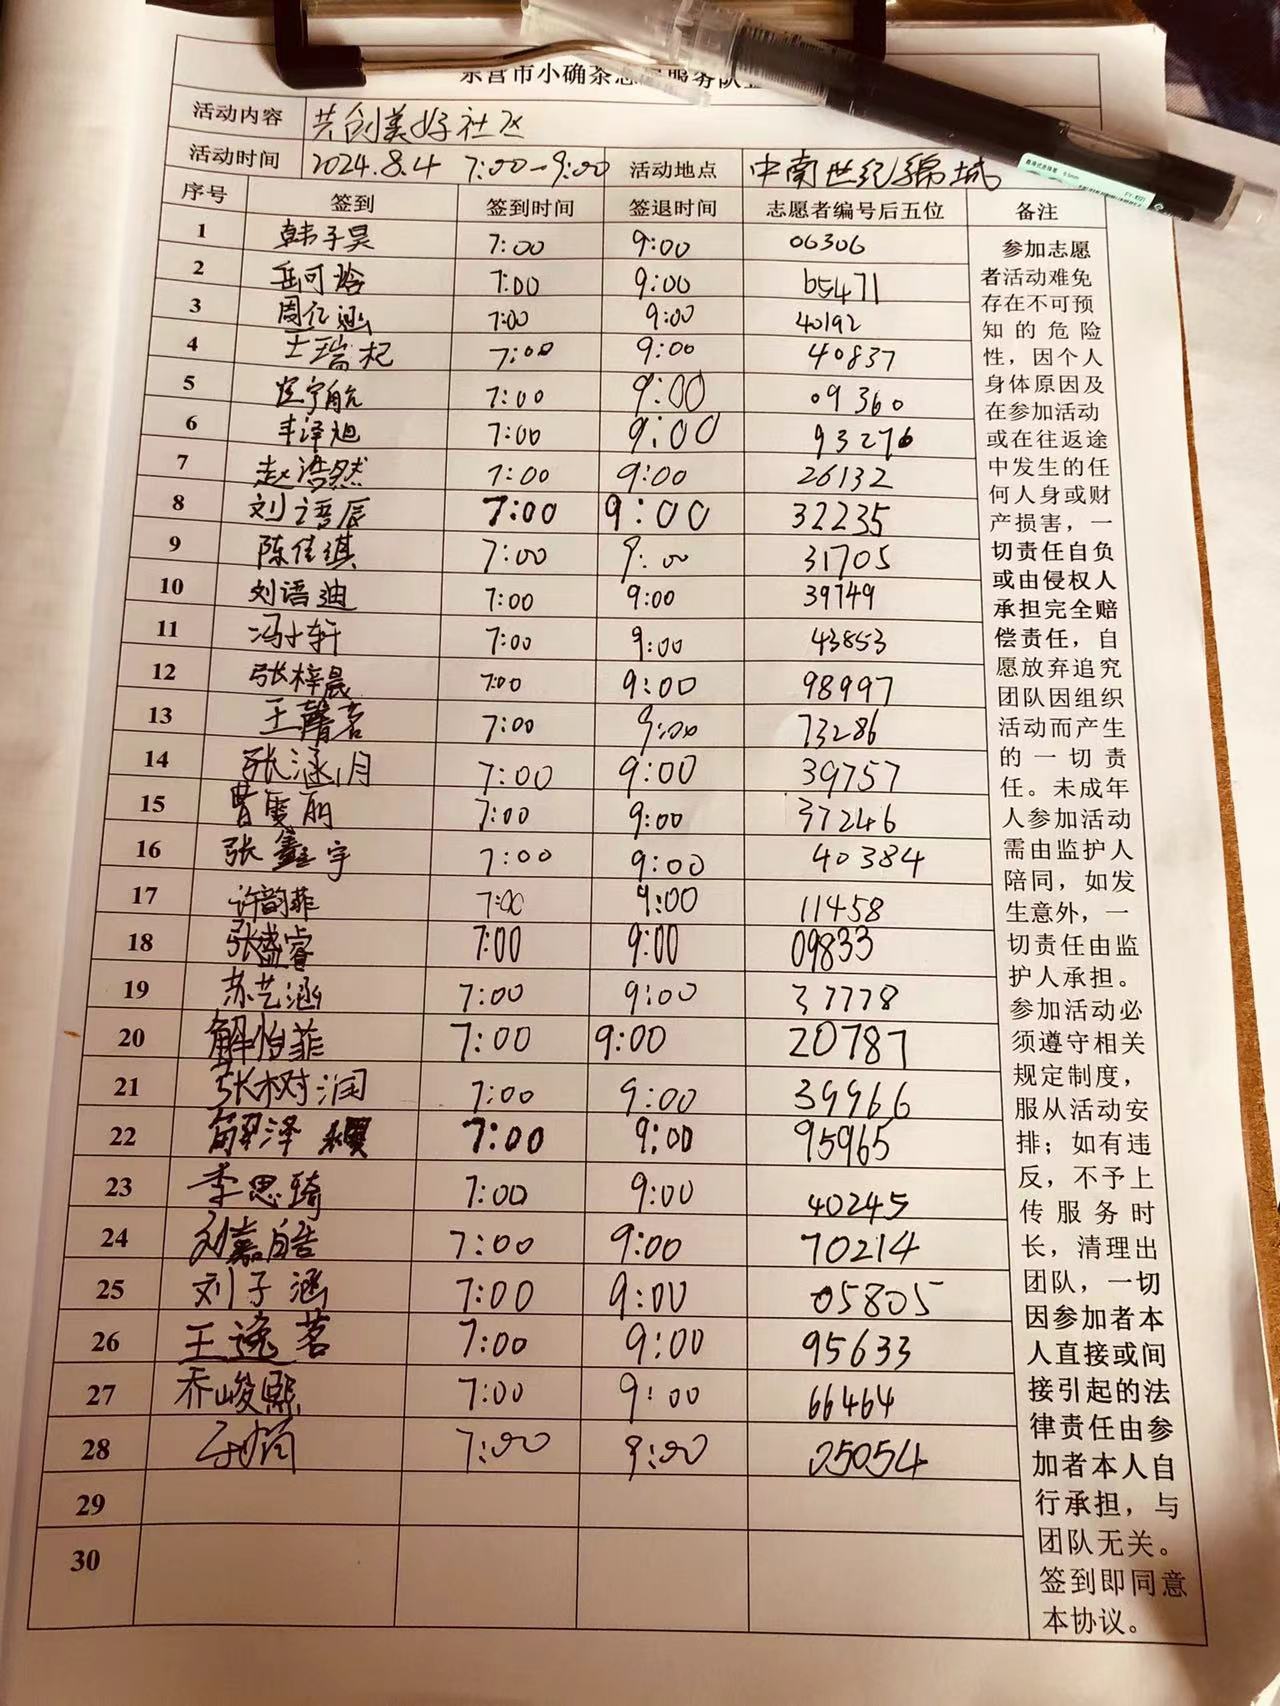 东营市小确茶志愿服务队
活动内容 共创美好社区
活动时间 2024.8.4 7:00-9:00 活动地点 中南世纪锦城
序号 签到 签到时间 签退时间 志愿者编号后五位 备注
1 韩子昊 7:00 9:00 06306
2 岳可 7:00 9:00 65471
3 周亿涵 7:00 9:00 40192
4 王瑞杞 7:00 9:00 40837
5 宇航 7:00 9:00 09360
6 丰泽旭 7:00 9:00 93276
7 赵浩然 7:00 9:00 26132
8 刘语辰 7:00 9:00 32235
9 陈佳琪 7:00 9:00 31705
10 刘语迪 7:00 9:00 39749
11 冯十轩 7:00 9:00 43853
12 张梓晨 7:00 9:00 98997
13 王馨茗 7:00 9:00 73286
14 张涵月 7:00 9:00 39757
15 曹雯丽 7:00 9:00 37246
16 张鑫宇 7:00 9:00 40384
17 许韵菲 7:00 9:00 11458
18 张盛睿 7:00 9:00 09833
19 苏艺涵 7:00 9:00 37778
20 解怡菲 7:00 9:00 20787
21 张树润 7:00 9:00 39966
22 泽 7:00 9:00 95965
23 李思琦 7:00 9:00 40245
24 刘嘉皓 7:00 9:00 70214
25 刘子涵 7:00 9:00 05805
26 王逸茗 7:00 9:00 95633
27 乔峻熙 7:00 9:00 66464
28 7:00 9:00 25054
29
30
参加志愿
者活动难免
存在不可预
知的危险
性，因个人
身体原因及
在参加活动
或在往返途
中发生的任
何人身或财
产损害，一
切责任自负
或由侵权人
承担完全赔
偿责任，自
愿放弃追究
团队因组织
活动而产生
的一切责
任。未成年
人参加活动
需由监护人
陪同，如发
生意外，一
切责任由监
护人承担。
参加活动必
须遵守相关
规定制度，
服从活动安
排；如有违
反，不予上
传服务时
长，清理出
团队，一切
因参加者本
人直接或间
接引起的法
律责任由参
加者本人自
行承担，与
团队无关。
签到即同意
本协议。